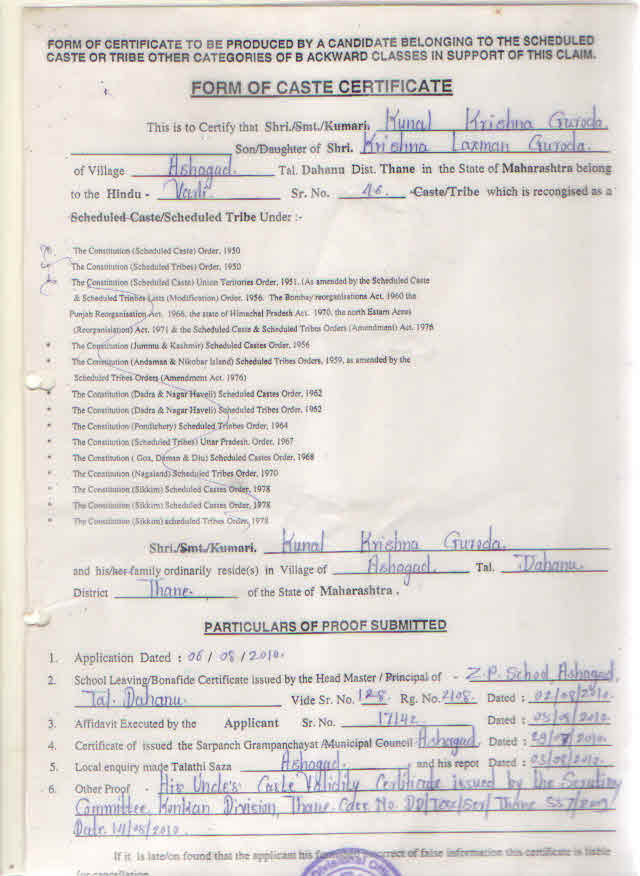 FORM OF CERTIFICATE TO BE PRODUCED BY A CANDIDATE BELONGING TO THE SCHEDULED
CASTE OR TRIBE OTHER CATEGORIES OF B ACKWARD CLASSES IN SUPPORT OF THIS CLAIM.
FORM OF CASTE CERTIFICATE
This is to Certify that Shri./Smt./Kumari. Kunal Krishna Guroda.
Son/Daughter of Shri. Krishna Laxman Guroda.
of Village Ashagad. Tal. Dahanu Dist. Thane in the State of Maharashtra belong
to the Hindu - Varli Sr. No. 46. Caste/Tribe which is recongised as a
Scheduled Caste/Scheduled Tribe Under :-
The Constitution (Scheduled Caste) Order, 1950
* The Constitution (Scheduled Tribes) Order, 1950
* The Constitution (Scheduled Caste) Union Teritories Order, 1951. (As amended by the Scheduled Caste
& Scheduled Trinbes Lists (Modification) Order. 1956. The Bombay reorganisations Act. 1960 the
Punjab Reorganisation Act. 1966. the state of Himachel Pradesh Act. 1970, the north Estarn Areas
(Reorganisiation) Act. 1971 & the Scheduled Caste & Scheduled Tribes Orders (Amendment) Act. 1976
* The Constitution (Jummu & Kashmir) Scheduled Castes Order, 1956
* The Constitution (Andaman & Nikobar Island) Scheduled Tribes Orders, 1959, as amended by the
Scheduled Tribes Orders (Amendment Act. 1976)
* The Constitution (Dadra & Nagar Haveli) Scheduled Castes Order, 1962
* The Constitution (Dadra & Nagar Haveli) Scheduled Tribes Order, 1962
* The Constitution (Pondichery) Scheduled Trinbes Order, 1964
* The Constitution (Scheduled Tribes) Uttar Pradesh. Order, 1967
* The Constitution ( Goa, Daman & Diu) Scheduled Castes Order, 1968
* The Constitution (Nagaland) Scheduled Tribes Order, 1970
* The Constitution (Sikkim) Scheduled Castes Order, 1978
* The Constitution (Sikkim) Scheduled Castes Order, 1978
* The Constitution (Sikkim) scheduled Tribes Order, 1978
Shri./Smt./Kumari. Kunal Krishna Guroda.
and his/her family ordinarily reside(s) in Village of Ashagad. Tal. Dahanu.
District Thane. of the State of Maharashtra .
PARTICULARS OF PROOF SUBMITTED
1. Application Dated : 06/08/2010.
2. School Leaving/Bonafide Certificate issued by the Head Master / Principal of - Z.P. School, Ashagad,
Tal. Dahanu. Vide Sr. No. 128. Rg. No. 2108. Dated : 02/08/2010.
3. Affidavit Executed by the Applicant Sr. No. 17142. Dated : 2010.
4. Certificate of issued the Sarpanch Grampanchayat /Municipal Council Ashagad. Dated : 2010.
5. Local enquiry made Talathi Saza Ashagad. and his repot Dated : 2010.
6. Other Proof - His Uncle's Caste Validity Certificate issued by the Scrutiny
Committee, Konkan Division, Thane. No. Thane
Date. 2010.
If it is late/on found that the applicant his of false information this certificate is liable
for cancellation